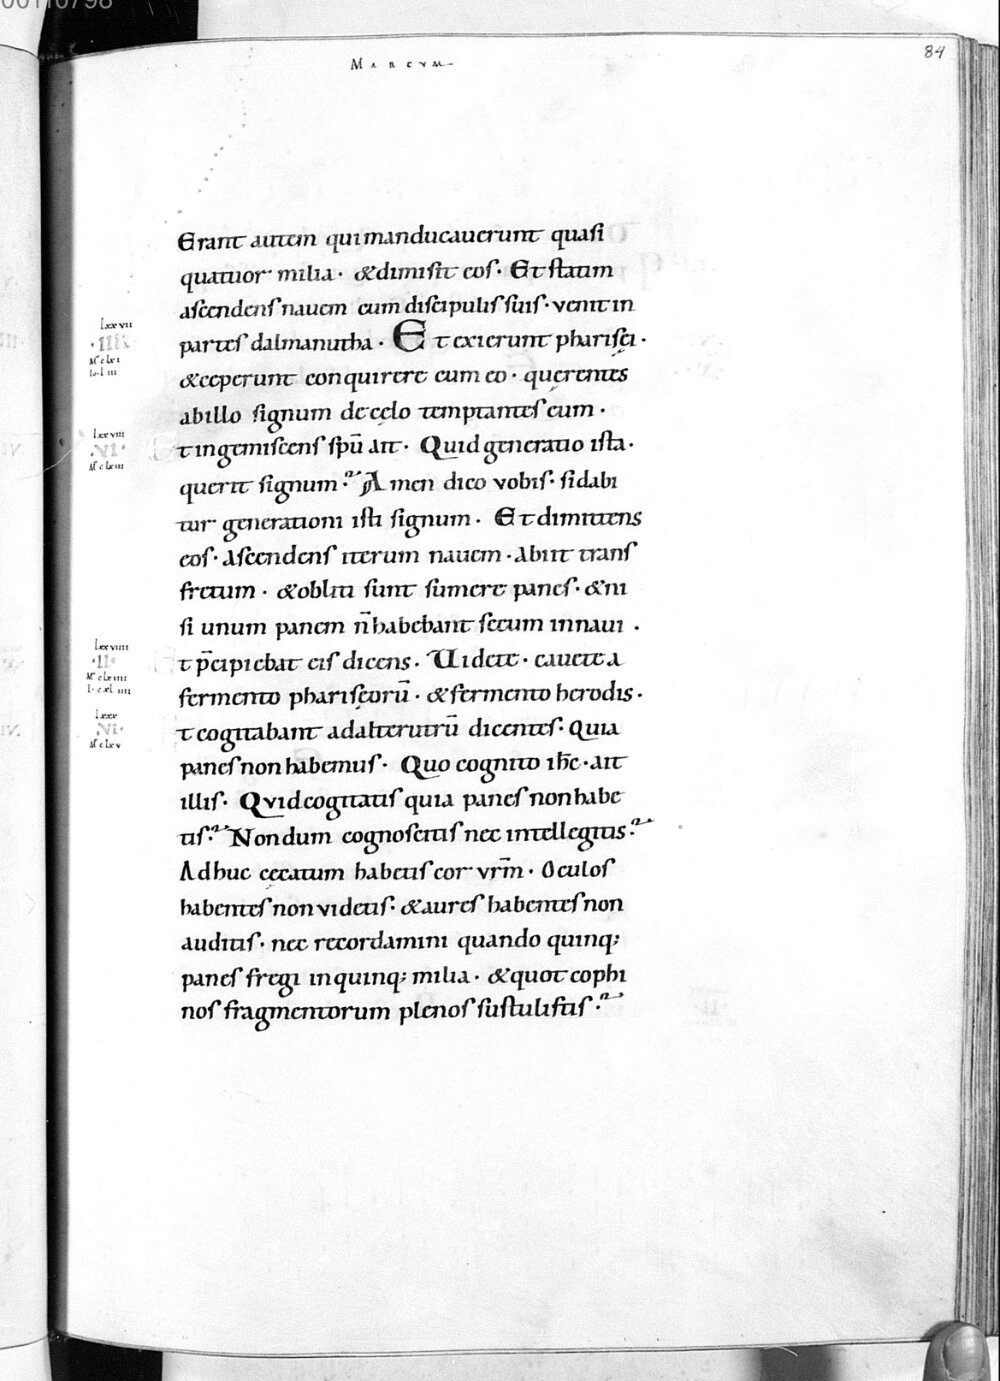 00110798
MARCVM
84
Erant autem qui manducauerunt quasi
quatuor milia · & dimisit eos · Et statim
ascendens nauem cum discipulis suis · venit in
partes dalmanutha · Et exierunt pharisęi ·
& ceperunt conquirere cum eo · querentes
ab illo signum de cęlo temptantes eum ·
t ingemiscens spū ait · Quid generatio ista ·
querit signum ? Amen dico vobis · si dabi
tur generationi isti signum · Et dimittens
eos · ascendens iterum nauem · abiit trans
fretum · & obliti sunt sumere panes · & ni
si unum panem n̄ habebant secum in naui ·
t p̄cipiebat eis dicens · Uidete · cauete a
fermento pharisęorū · & fermento herodis ·
t cogitabant ad alterutrū dicentes · Quia
panes non habemus · Quo cognito ih̄c · ait
illis · Quid cogitatis quia panes non habe
tis ? Nondum cognoscitis nec intellegitis ?
Adhuc cęcatum habetis cor vr̄m · Oculos
habentes non videtis · & aures habentes non
auditis · nec recordamini quando quinq;
panes fregi in quinq; milia · & quot cophi
nos fragmentorum plenos sustulistis ?
lxxvii
·IIII·
lxxviii
·VI·
lxxviiii
·II·
lxxx
·VI·